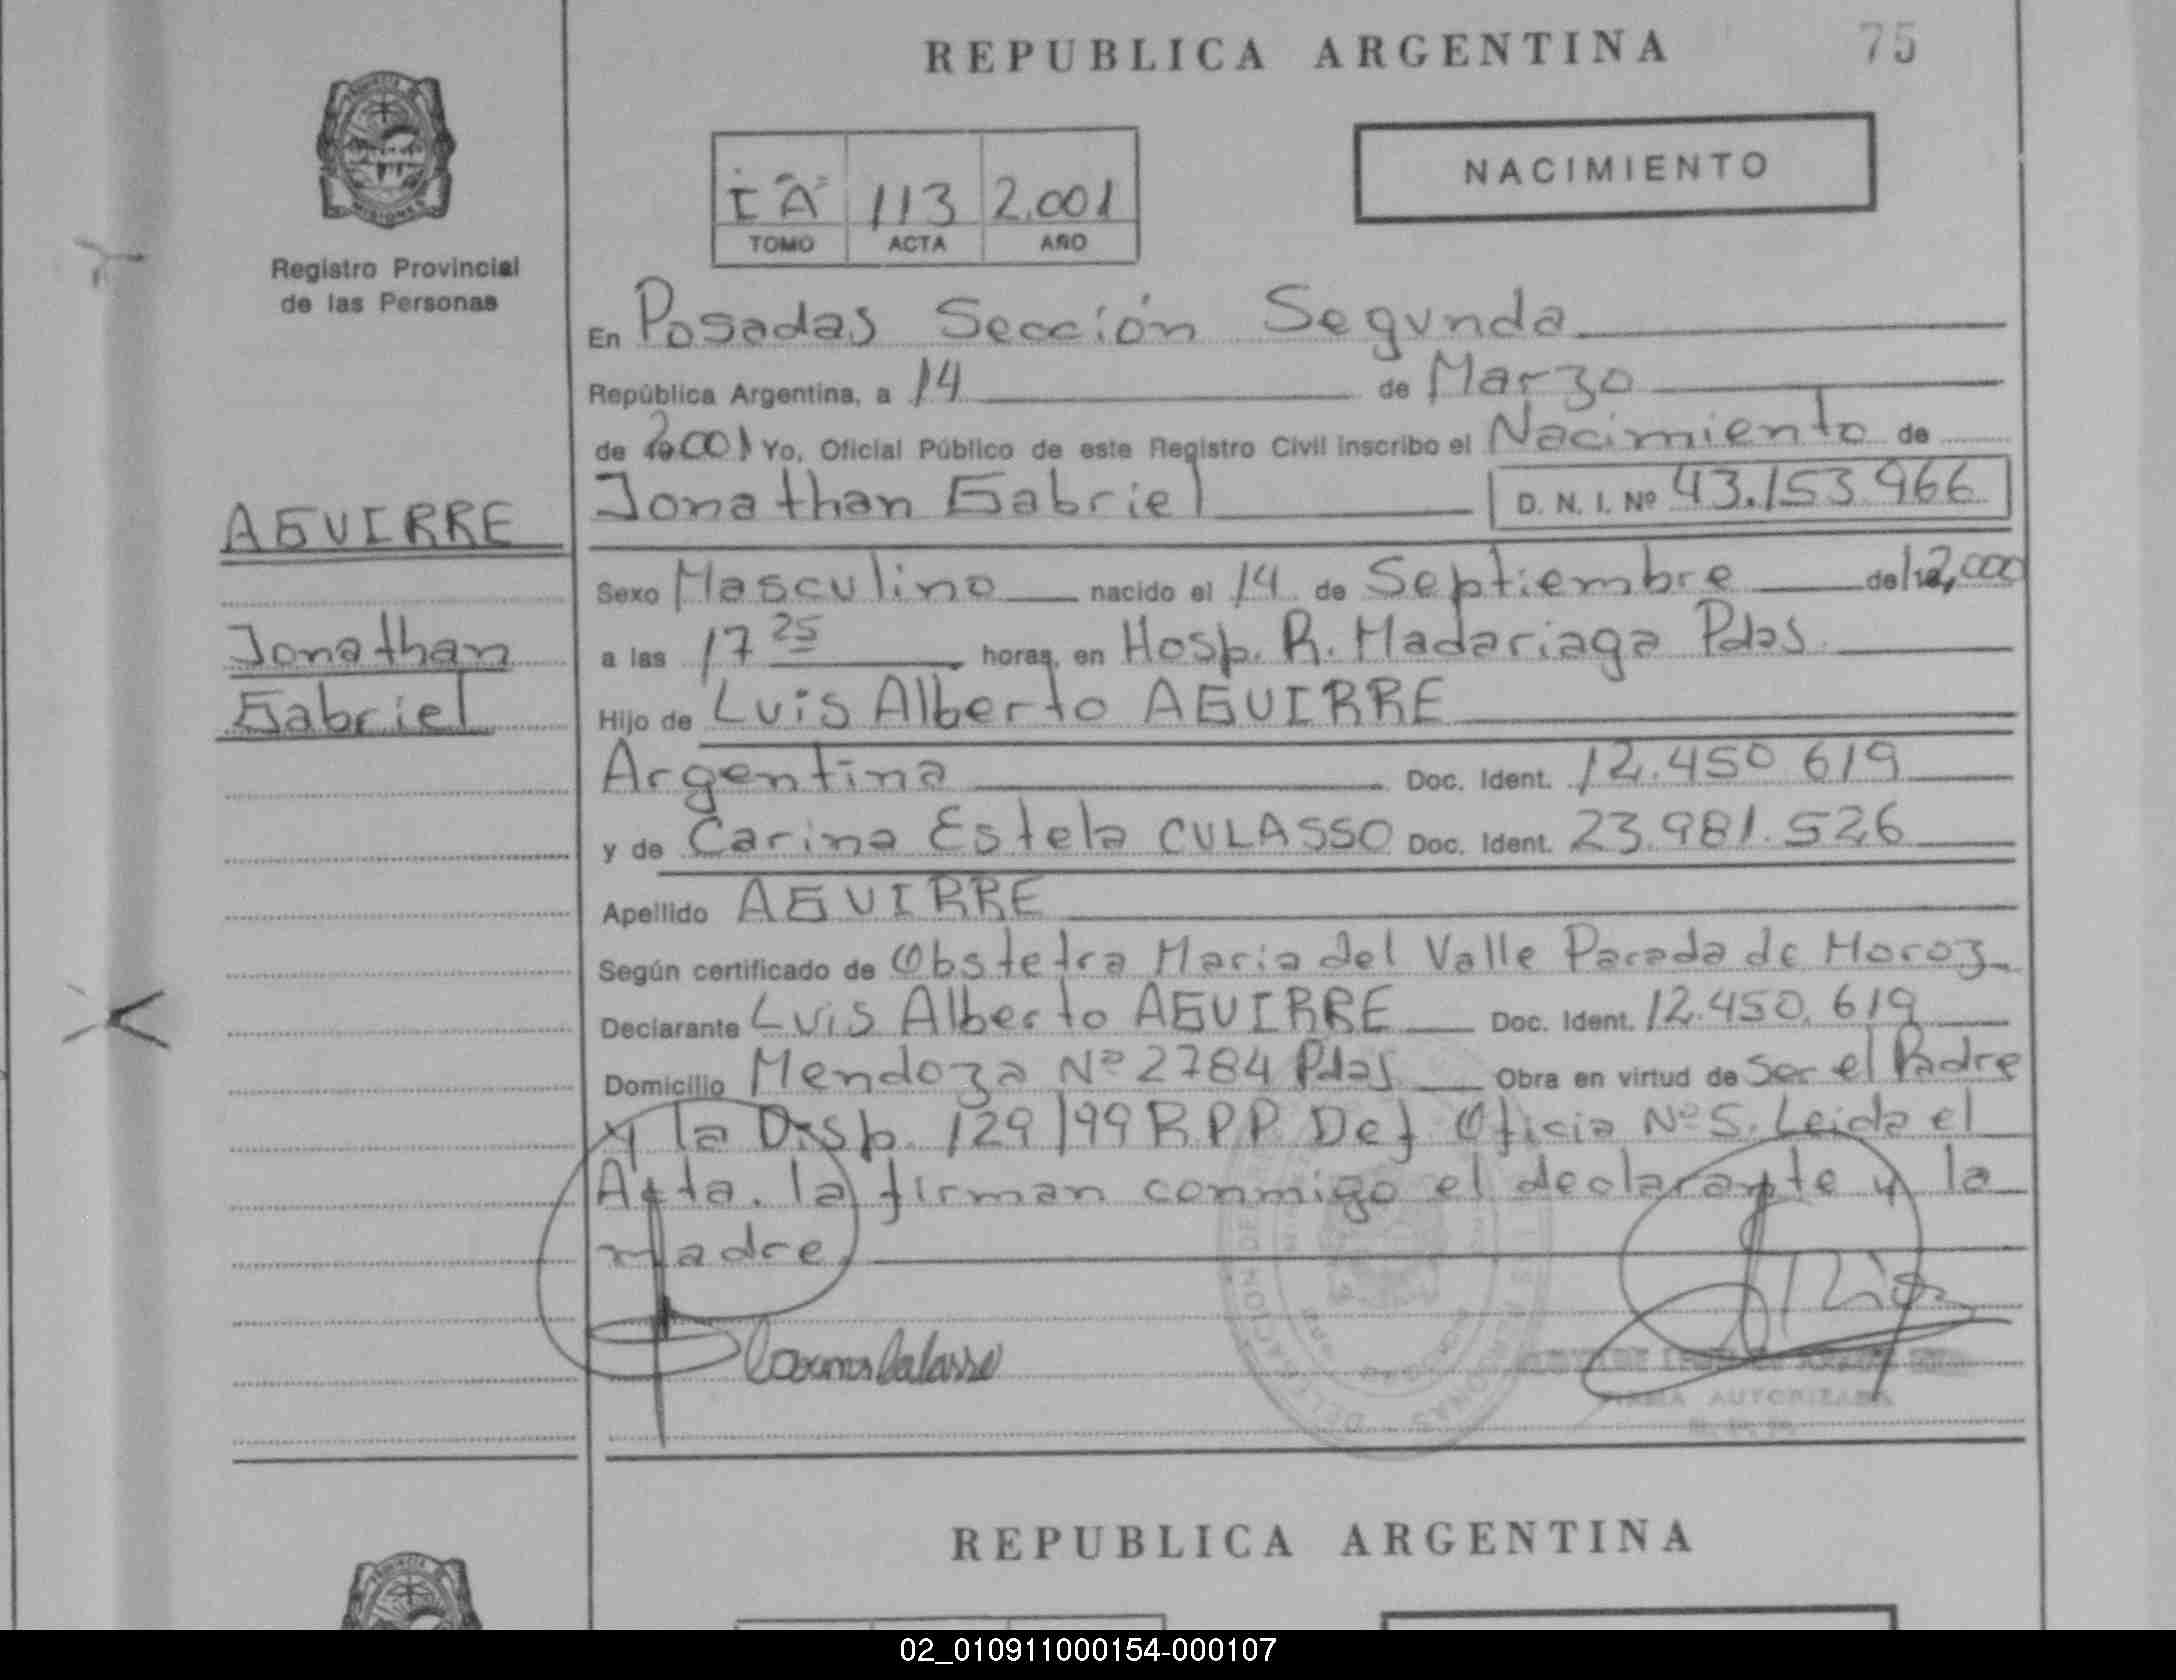 REPUBLICA ARGENTINA
75
PROVINCIA DE
MISIONES
Registro Provincial
de las Personas
I "A" 113 2.001
TOMO ACTA AÑO
NACIMIENTO
En Posadas Sección Segunda
República Argentina, a 14 de Marzo
de 2001 Yo, Oficial Público de este Registro Civil inscribo el Nacimiento de
AGUIRRE
Jonathan Gabriel D. N. I. Nº 43.153.966
Sexo Masculino nacido el 14 de Septiembre del 2,000
Jonathan
Gabriel
a las 17 25 horas, en Hosp. R. Madariaga Pdas.
Hijo de Luis Alberto AGUIRRE
Argentina Doc. Ident. 12.450 619
y de Carina Estela CULASSO Doc. Ident. 23.981.526
Apellido AGUIRRE
Según certificado de Obstetra Maria del Valle Parada de Moroz
Declarante Luis Alberto AGUIRRE Doc. Ident. 12.450.619
Domicilio Mendoza Nº 2784 Pdas Obra en virtud de Ser el Padre
y la Disp. 129/99 R P P Def Oficio Nº 5. Leida el
Acta. la firman conmigo el declarante y la
madre.
FIRMA AUTORIZADA
REPUBLICA ARGENTINA
02_010911000154-000107